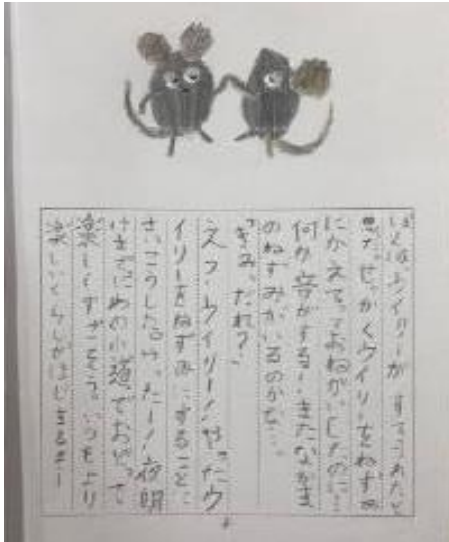 ぼくはウイリーがすてられたと
思た。せかくウイリーをねずみ
にかえてっておねがいしたのに…
何か音がする…またながま
のねずみがいるのかな…。
「きみ、だれ?」
えっ、ウイリー!やったウ
イリーをねずみにすること…
さいこうした。やったー!夜明
けまでにわの小道でおどって
楽しくすごそう。いつもより
楽しいくらしがはじまるぞー